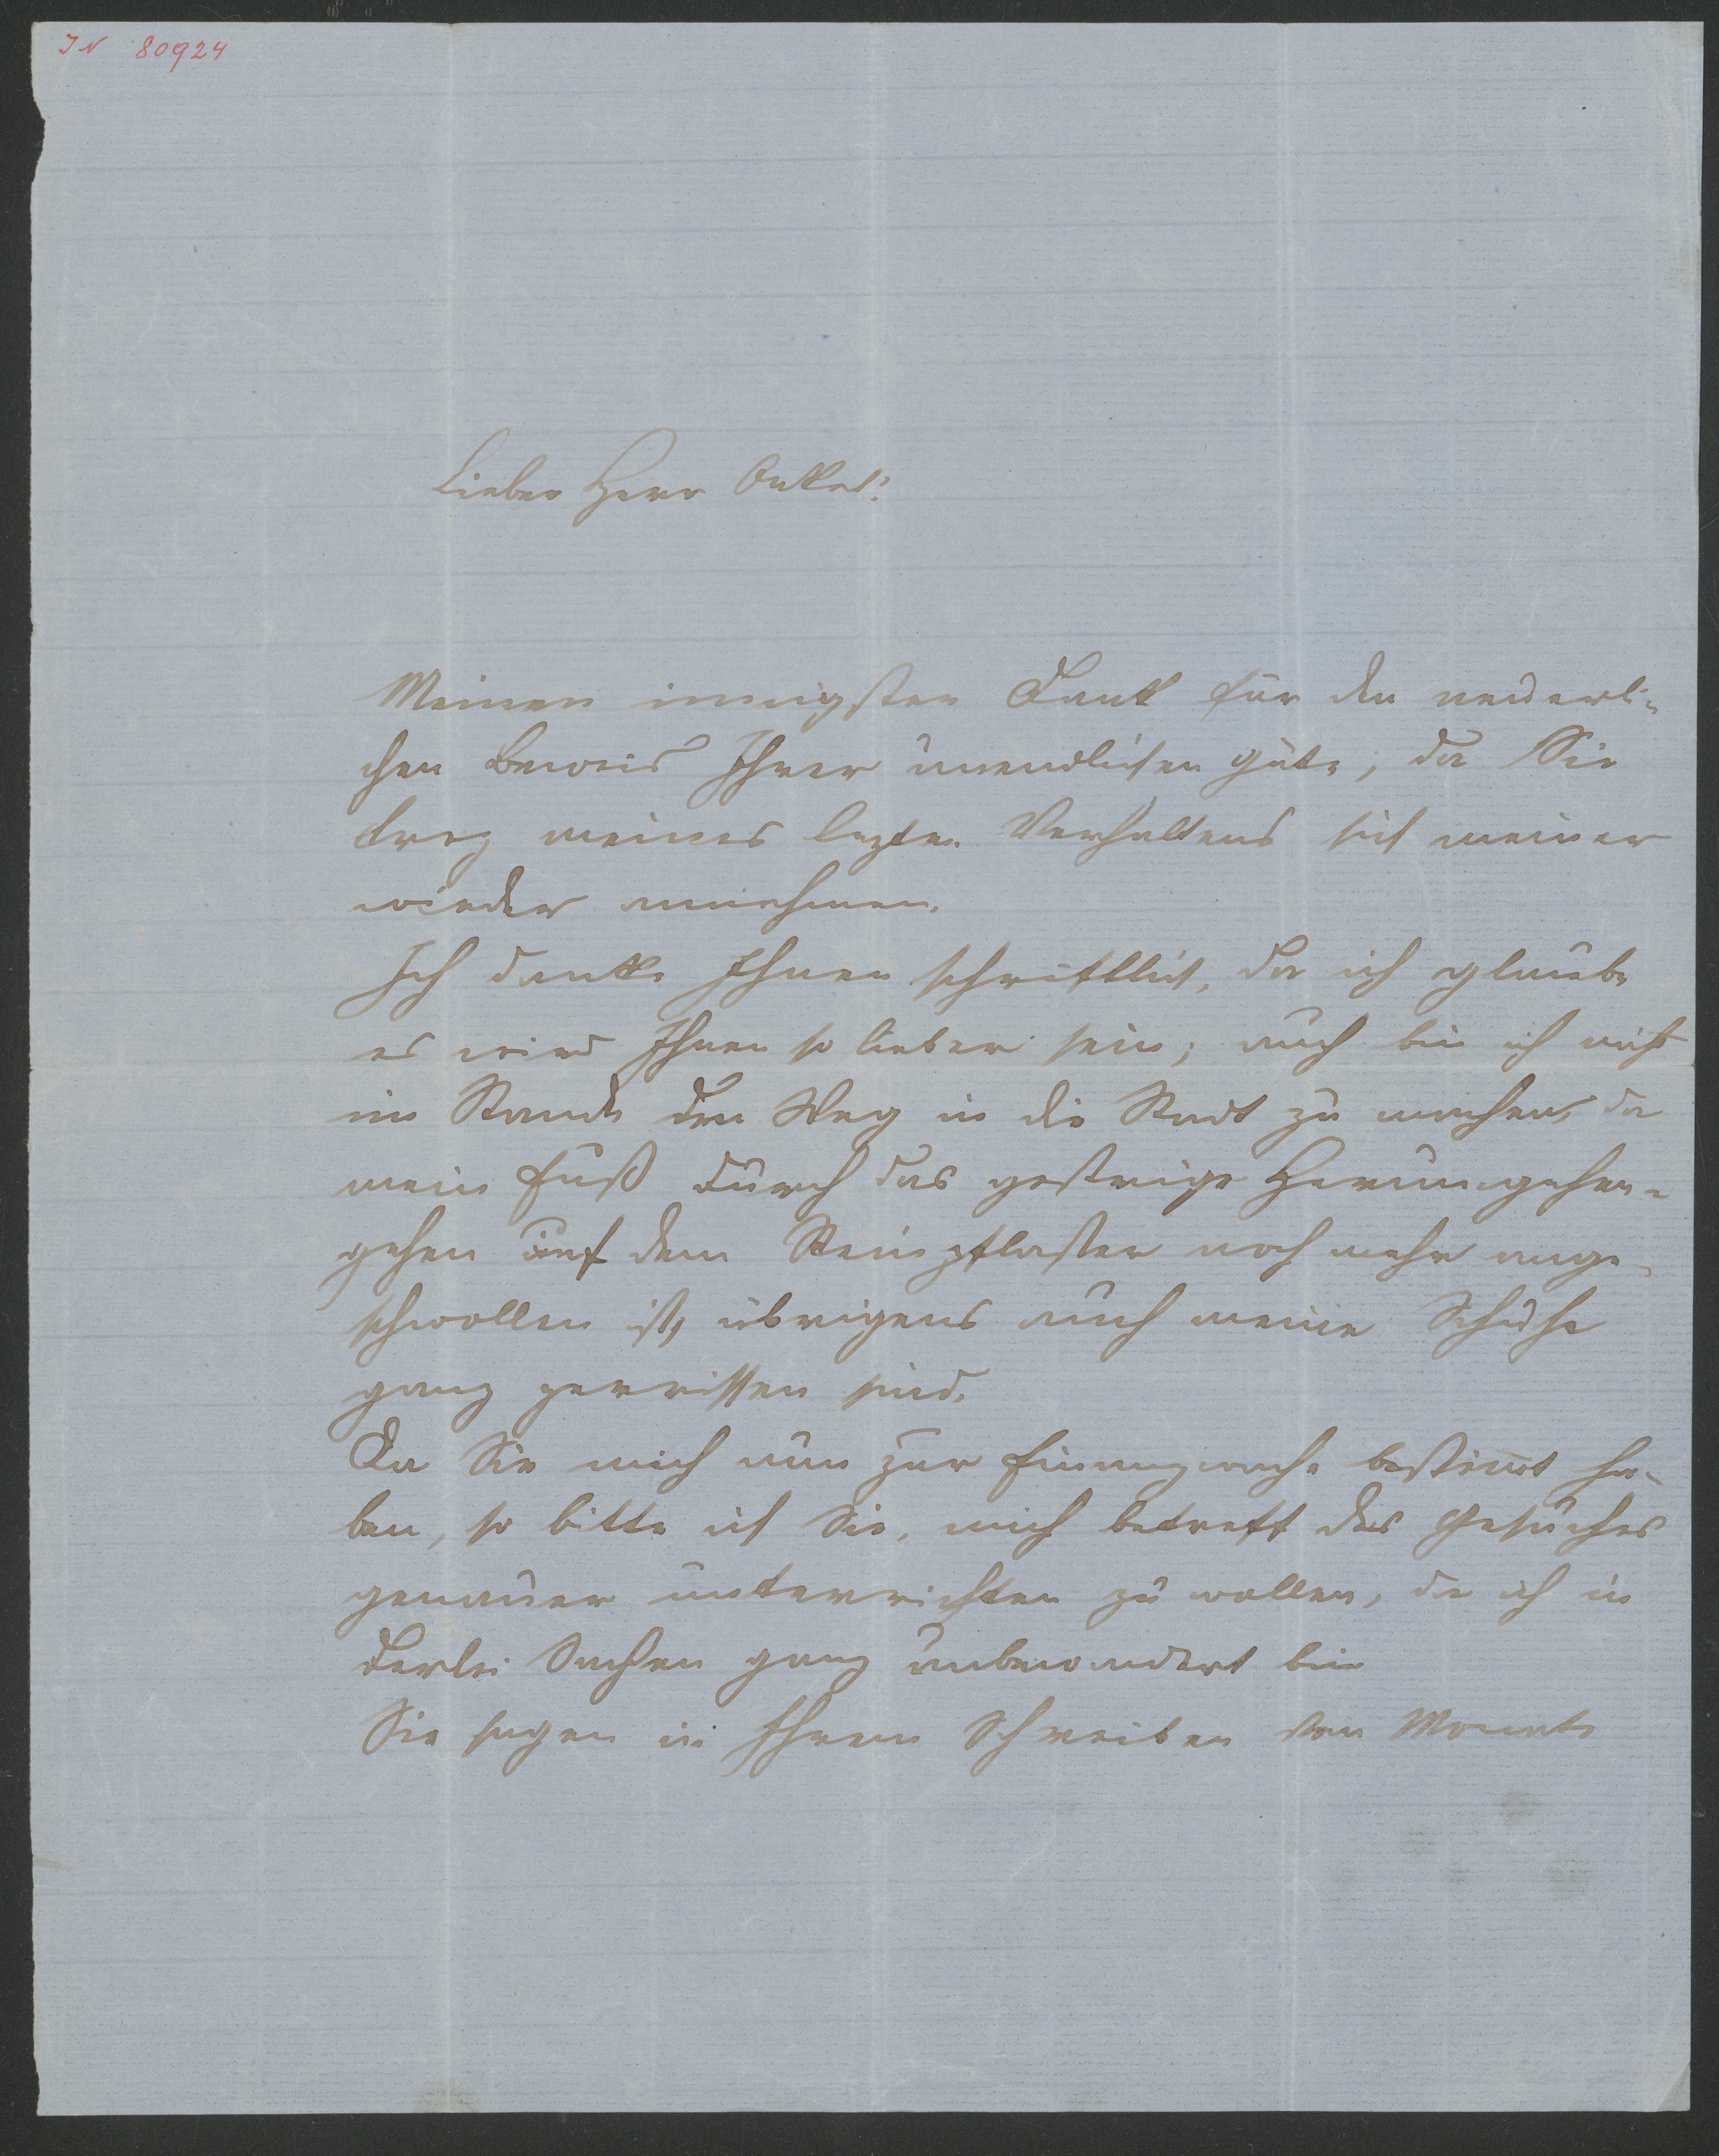 IN 80924
Lieber Herr Onkel!
Meinen innigsten Dank für den neuerli-
chen Beweis Ihrer unendlichen Güte, da Sie
troz meines lezten Verhaltens sich meiner
wieder annehmen.
Ich danke Ihnen schriftlich, da ich glaube
es wird Ihnen so lieber sein; auch bin ich nicht
im Stande den Weg in die Stadt zu machen, da
mein Fuß durch das gestrige Herumgehen-
gehen auf dem Steinpflaster noch mehr ange-
schwollen ist, übrigens auch meine Schuhe
ganz zerrissen sind.
Da Sie mich nun zur Finanzwache bestimt ha-
ben, so bitte ich Sie, mich betreff des Gesuches
genauer unterrichten zu wollen, da ich in
derlei Sachen ganz unbewandert bin
Sie sagen in Ihrem Schreiben von Monate